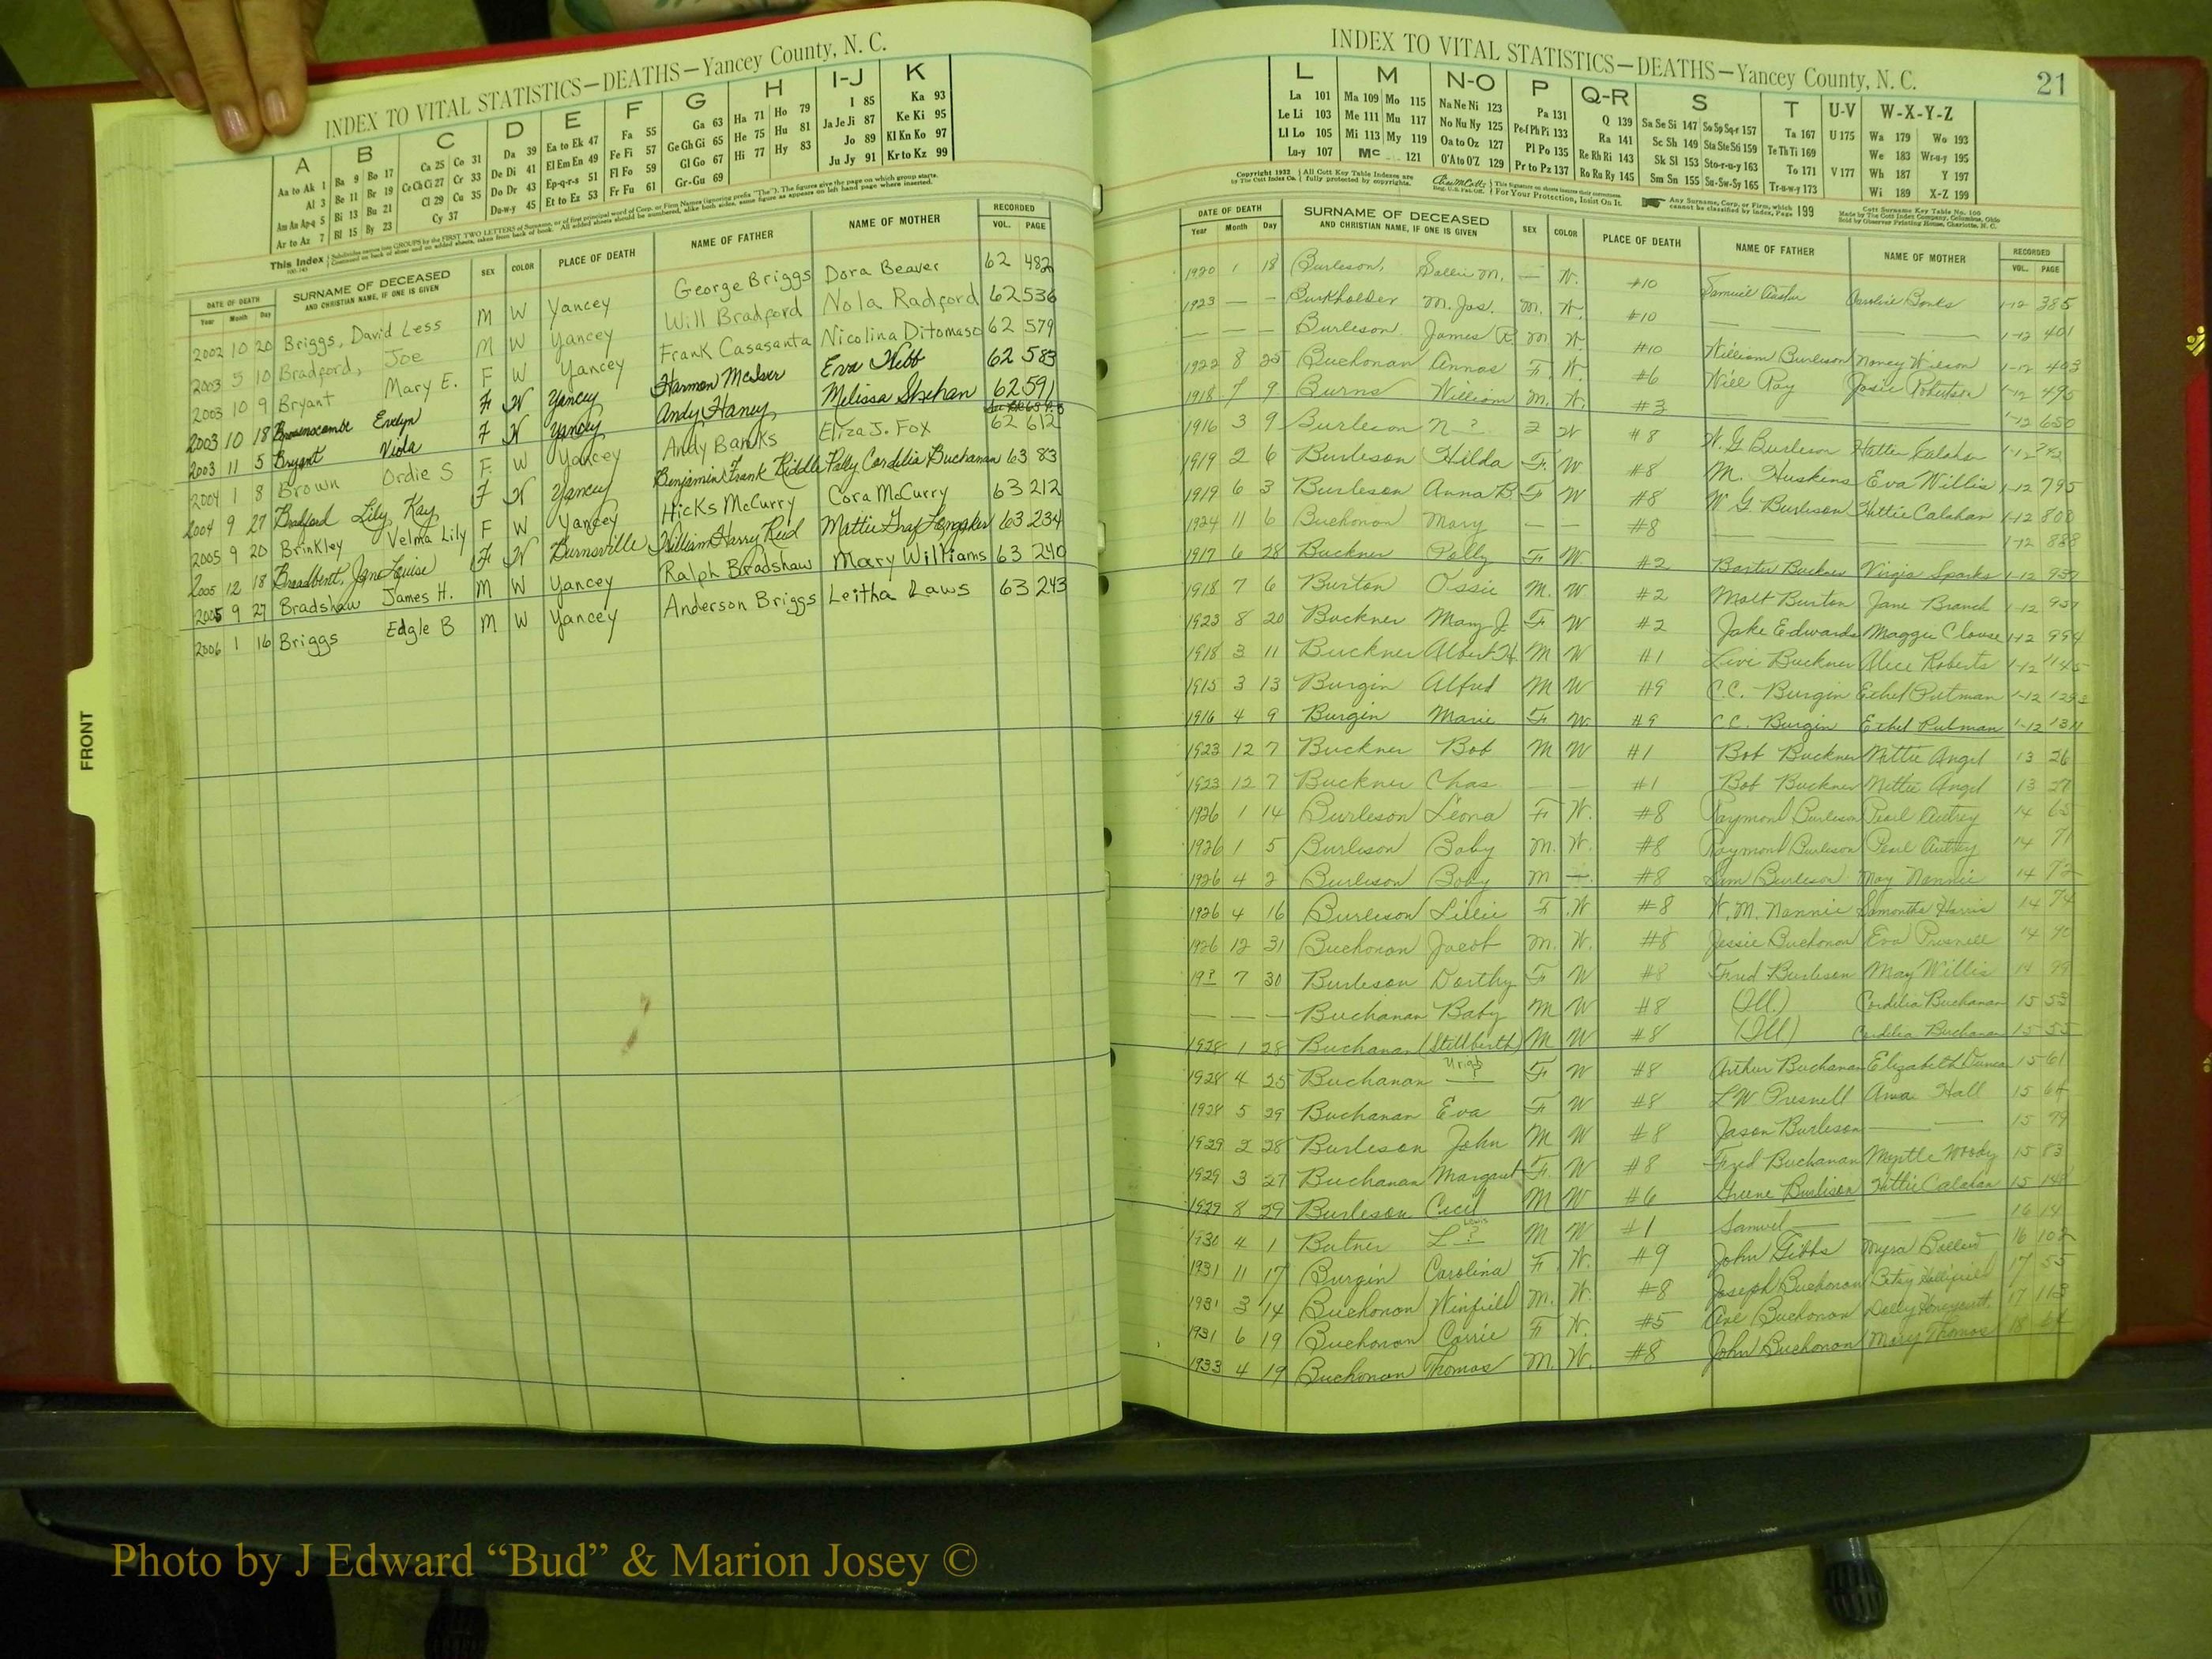 INDEX TO VITAL STATISTICS—DEATHS—Yancey County, N. C.
A B C D E F G H I-J K
Aa to Ak 1 Ba 9 Bo 17 Ca 25 Co 31 Da 39 Ea to Ek 47 Fa 55 Ga 63 Ha 71 Ho 79 I 85 Ka 93
Al 3 Be 11 Br 19 Ce Ch Ci 27 Cr 33 De Di 41 El Em En 49 Fe Fi 57 Ge Gh Gi 65 He 75 Hu 81 Ja Je Ji 87 Ke Ki 95
Am An Ap-q 5 Bi 13 Bu 21 Cl 29 Cu 35 Do Dr 43 Ep-q-r-s 51 Fl Fo 59 Gl Go 67 Hi 77 Hy 83 Jo 89 Kl Kn Ko 97
Ar to Az 7 Bl 15 By 23 Cy 37 Du-w-y 45 Et to Ez 53 Fr Fu 61 Gr-Gu 69 Ju Jy 91 Kr to Kz 99
DATE OF DEATH SURNAME OF DECEASED SEX COLOR PLACE OF DEATH NAME OF FATHER NAME OF MOTHER RECORDED
Year Month Day AND CHRISTIAN NAME, IF ONE IS GIVEN VOL. PAGE
2002 10 20 Briggs, David Less M W Yancey George Briggs Dora Beaver 62 482
2003 5 10 Bradford, Joe M W Yancey Will Bradford Nola Radford 62 536
2003 10 9 Bryant Mary E. F W Yancey Frank Casasanta Nicolina Ditomaso 62 579
2003 10 18 Evelyn F W Yancey Harmon Eva 62 583
2003 11 5 Bryant Viola F W Yancey Andy Haney Melissa Shehan 62 591
2004 1 8 Brown Ordie S F. W Yancey Andy Banks Eliza J. Fox 62 612
2004 9 27 Bradford Lily Kay F W Yancey Benjamin Frank Riddle Polly Cordelia Buchanan 63 83
2005 9 20 Brinkley Velma Lily F W Yancey Hicks McCurry Cora McCurry 63 212
2005 12 18 Broadbent, Jane Louise F W Burnsville William Harry Reid Mattie 63 234
2005 9 27 Bradshaw James H. M W Yancey Ralph Bradshaw Mary Williams 63 240
2006 1 16 Briggs Edgle B M W Yancey Anderson Briggs Leitha Laws 63 243
FRONT
INDEX TO VITAL STATISTICS—DEATHS—Yancey County, N. C. 21
L M N-O P Q-R S T U-V W-X-Y-Z
La 101 Ma 109 Mo 115 Na Ne Ni 123 Pa 131 Q 139 Sa Se Si 147 So Sp Sq-r 157 Ta 167 U 175 Wa 179 Wo 193
Le Li 103 Me 111 Mu 117 No Nu Ny 125 Pe-f Ph Pi 133 Ra 141 Sc Sh 149 Sta Ste Sti 159 Te Th Ti 169 We 183 Wr-u-y 195
Ll Lo 105 Mi 113 My 119 Oa to Oz 127 Pl Po 135 Re Rh Ri 143 Sk Sl 153 Sto-r-u-y 163 To 171 V 177 Wh 187 Y 197
Lu-y 107 Mc 121 O'A to O'Z 129 Pr to Pz 137 Ro Ru Ry 145 Sm Sn 155 Su-Sw-Sy 165 Tr-u-w-y 173 Wi 189 X-Z 199
DATE OF DEATH SURNAME OF DECEASED SEX COLOR PLACE OF DEATH NAME OF FATHER NAME OF MOTHER RECORDED
Year Month Day AND CHRISTIAN NAME, IF ONE IS GIVEN VOL. PAGE
1920 1 18 Burleson, Sallie M. — W. #10 Samuel Caroline Banks 1-12 385
1923 — — Burkholder M. Jas. M. W. #10 — — 1-12 401
— — — Burleson James R. M W. #10 William Burleson Nancy Wilson 1-12 403
1922 8 25 Buchanan Annas F. W. #6 Will Ray Josie Robertson 1-12 495
1918 7 9 Burns William M. W. #3 — — 1-12 650
1916 3 9 Burleson N ? W #8 W. G. Burleson Hattie Calahan 1-12
1919 2 6 Burleson Hilda F. W #8 M. Huskins Eva Willis 1-12 795
1919 6 3 Burleson Anna B F W #8 W. G. Burleson Hattie Calahan 1-12 800
1924 11 6 Buchanan Mary — — #8 — — 1-12 888
1917 6 28 Buckner Polly F W #2 Baxter Buckner Virgia Sparks 1-12 937
1918 7 6 Burton Ossie M. W #2 Molt Burton Jane Branch 1-12 957
1923 8 20 Buckner Mary J. F W #2 Jake Edwards Maggie Clouse 1-12 994
1918 3 11 Buckner Albert H. M W #1 Levi Buckner Alice Roberts 1-12 1145
1915 3 13 Burgin Alfred M W #9 C.C. Burgin Ethel Putman 1-12
1916 4 9 Burgin Marie F W #9 C.C. Burgin Ethel Putman 1-12
1923 12 7 Buckner Bob M W #1 Bob Buckner Nettie Angel 13 26
1923 12 7 Buckner Chas — — #1 Bob Buckner Nettie Angel 13 27
1926 1 14 Burleson Leona F W. #8 Raymond Burleson Pearl Autrey 14 65
1926 1 5 Burleson Baby M. W. #8 Raymond Burleson Pearl Autrey 14 71
1926 4 2 Burleson Baby M — #8 Sam Burleson May Nannie 14 72
1926 4 16 Burleson Lillie F. W #8 W. M. Nannie Samantha Harris 14 74
1926 12 31 Buchanan Jacob M. W. #8 Jessie Buchanan Eva Presnell 14 90
19? 7 30 Burleson Dorthy F W #8 Fred Burleson May Willis 14 99
— — — Buchanan Baby M W #8 (Ill.) Cordelia Buchanan 15 53
1928 1 28 Buchanan (Stillbirth) M W #8 (Ill) Cordelia Buchanan 15 55
1928 4 25 Buchanan — F W #8 Arthur Buchanan Elizabeth Duncan 15 61
1928 5 29 Buchanan Eva F W #8 L W Presnell Hall 15 64
1929 2 28 Burleson John M W #8 Jason Burleson — 15 79
1929 3 27 Buchanan Margaret F. W #8 Fred Buchanan Myrtle Woody 15 83
1929 8 29 Burleson Cecil M W #6 Greene Burlison Hattie Calahan 15 148
1930 4 1 Butner L ? Lewis M W #1 Samuel — — 16 14
1931 11 17 Burgin Carolina F. W. #9 John Gibbs Myra Ballew 16 102
1931 3 14 Buchanan Winfield M. W. #8 Joseph Buchanan Betsy Hollifield 17 55
1931 6 19 Buchanan Carrie F W. #5 Buchanan Dolly Honeycutt 17 113
1933 4 19 Buchanan Thomas M. W. #8 John Buchanan Mary Thomas 18 64
Photo by J Edward “Bud” & Marion Josey ©